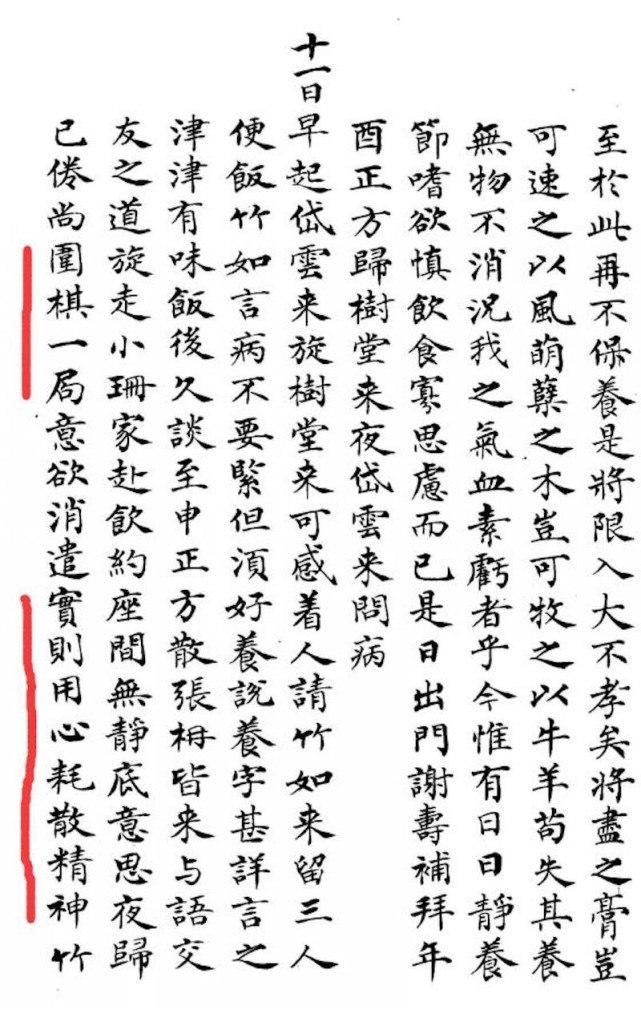 至於此再不保養是將限入大不孝矣將盡之膏豈
可速之以風萌蘖之木豈可牧之以牛羊苟失其養
無物不消況我之氣血素虧者乎今惟有日日靜養
節嗜欲慎飲食寡思慮而已是日出門謝壽補拜年
酉正方歸樹堂来夜岱雲来問病
十一日早起岱雲来旋樹堂来可感着人請竹如来留三人
便飯竹如言病不要緊但須好養說養字甚詳言之
津津有味飯後久談至申正方散張枏皆来与語交
友之道旋走小珊家赴飲約座間無靜底意思夜歸
已倦尚圍棋一局意欲消遣實則用心耗散精神竹